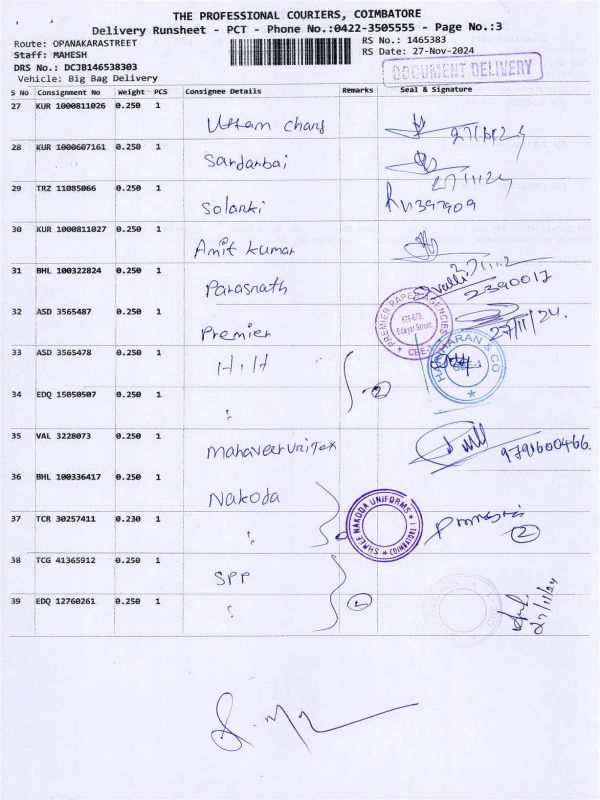 THE PROFESSIONAL COURIERS, COIMBATORE
Delivery Runsheet - PCT - Phone No.:0422-3505555 - Page No.:3
Route: OPANAKARASTREET
RS No.: 1465383
Staff: MAHESH
RS Date: 27-Nov-2024
DRS No.: DCJB146538303
DOCUMENT DELIVERY
Vehicle: Big Bag Delivery
S No Consignment No Weight PCS Consignee Details Remarks Seal & Signature
27 KUR 1000811026 0.250 1 Uttam Chand
28 KUR 1000607161 0.250 1 Sardarbai 27/11/24
29 TRZ 11085066 0.250 1 Solanki
30 KUR 1000811027 0.250 1 Amit Kumar
31 BHL 100322824 0.250 1 Parasnath 2390017
32 ASD 3565487 0.250 1 Premier PREMIER PAPER AGENCIES CBE-1 27/11/24.
33 ASD 3565478 0.250 1 H.H HARIHARAN & CO CBE-1
34 EDQ 15050507 0.250 1 " 2
35 VAL 3228073 0.250 1 Mahaveer Unitex 9791600466.
36 BHL 100336417 0.250 1 Nakoda
37 TCR 30257411 0.230 1 " SHREE NAKODA UNIFORMS COIMBATORE-1 2
38 TCG 41365912 0.250 1 SPP
39 EDQ 12760261 0.250 1 " 27/11/24